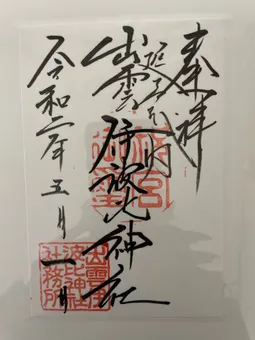 奉拝
延喜式内
出雲伊波比神社
令和二年五月一日
出雲伊
波比神社
社務所